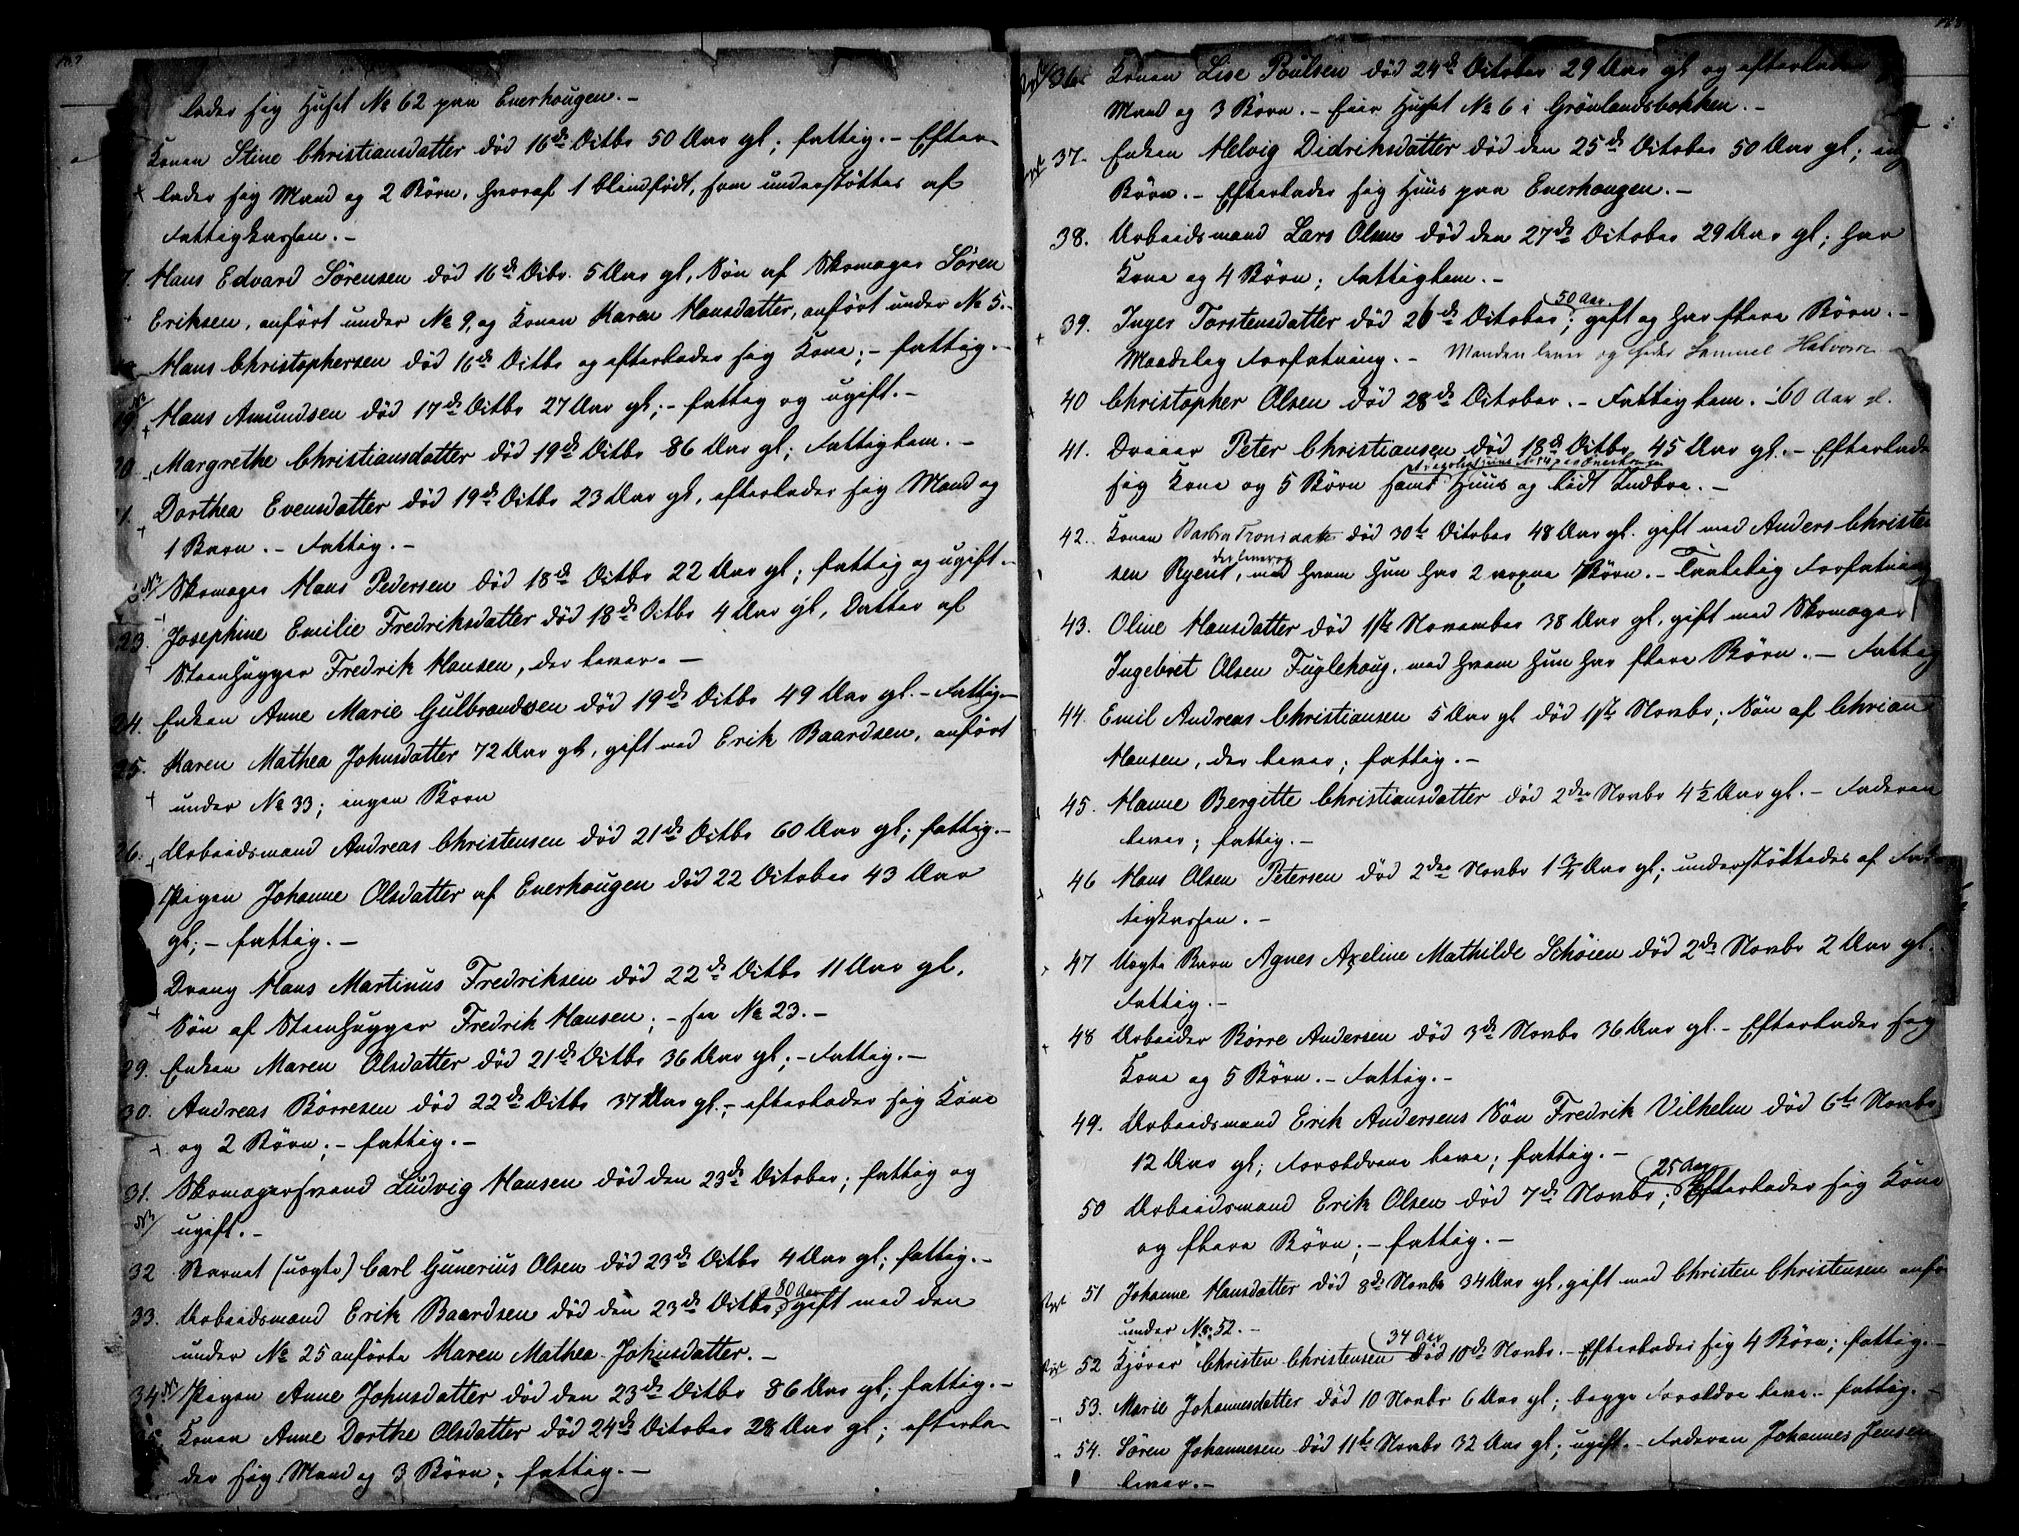 lader sig Huset № 62 paa Enerhougen. -
Konen Stine Christiansdatter død 16de Octbr 50 Aar gl; fattig. - Efter-
lader sig Mand og 2 Børn, hvoraf 1 blindfødt, som understøttes af
Fattigkassen. -
7. Hans Edvard Sørensen død 16de Octbr. 5 Aar gl, Søn af Skomager Søren
Eriksen, anført under № 9, og Konen Karen Hansdatter, anført under № 5. -
Hans Christophersen død 16de Octbr og efterlader sig Kone; - fattig. -
19. Hans Amundsen død 17de Octbr 27 Aar gl; - fattig og ugift. -
20. Margrethe Christiansdatter død 19de Octbr 86 Aar gl; Fattiglem. -
1. Dorthea Evensdatter død 19de Octbr 23 Aar gl, efterlader sig Mand og
1 Barn. - Fattig. -
Skomager Hans Pedersen død 18de Octbr 22 Aar gl; fattig og ugift. -
23. Josephine Emilie Fredriksdatter død 18de Octbr 4 Aar gl, Datter af
Steenhugger Fredrik Hansen, der lever. -
24. Enken Anne Marie Gulbrandsen død 19de Octbr 49 Aar gl. - Fattig. -
25. Karen Mathea Johnsdatter 72 Aar gl, gift med Erik Baardsen, anført
under № 33; ingen Børn
26. Arbeidsmand Andreas Christensen død 21de Octbr 60 Aar gl; fattig. -
Pigen Johanne Olsdatter af Enerhougen død 22 October 43 Aar
gl; - fattig. -
Dreng Hans Martinus Fredriksen død 22de Octbr 11 Aar gl,
Søn af Steenhugger Fredrik Hansen; - see № 23. -
29. Enken Maren Olsdatter død 21de Octbr 36 Aar gl; - Fattig. -
30. Andreas Börresen død 22de Octbr 37 Aar gl; - efterlader sig Kone
og 2 Børn; - fattig. -
31. Skomagersvend Ludvig Hansen død den 23de October; fattig og
ugift. -
32 Barnet (uægte) Carl Gunerius Olsen død 23de Octbr 4 Aar gl; fattig. -
80 Aar
33. Arbeidsmand Erik Baardsen død den 23de Octbr, gift med den
under № 25 anførte Karen Mathea Johnsdatter. -
34. Pigen Anne Johnsdatter død den 23de Octbr 86 Aar gl; fattig. -
Konen Anne Dorthe Olsdatter død 24de October 28 Aar gl; efterla-
der sig Mand og 3 Børn; fattig. -
36. Konen Lise Poulsen død 24de October 29 Aar gl og efterlader
Mand og 3 Børn. - Eier Huset № 6 i Grönlandsbakken. -
37. Enken Helvig Didriksdatter død den 25de October 50 Aar gl;
Børn. - Efterlader sig Huus paa Enerhougen. -
38. Arbeidsmand Lars Olsen død den 27de October 29 Aar gl; har
Kone og 4 Børn; Fattiglem. -
50 Aar
39. Inger Torstensdatter død 26de October; gift og har flere Børn. -
Maadelig Forfatning. - Manden lever og heder Samuel Halvorsen
40 Christopher Olsen død 28de October. - Fattiglem. - 60 Aar gl.
41. Dreier Peter Christiansen død 18de Octbr 45 Aar gl. - Efterlader
sig Kone og 5 Børn samt Huus og lidt Indboe. -
42. Konen død 30te October 48 Aar gl. gift med Anders Christen-
der lever og
sen Ryen, med hvem hun har 2 voxne Børn. - Taalelig Forfatning
43. Oline Hansdatter død 1ste November 38 Aar gl, gift med Skomager
Ingebret Olsen Fuglehaug, med hvem hun har flere Børn. - Fattig
44. Emil Andreas Christiansen 5 Aar gl død 1ste Novbr; Søn af Chrian
Hansen, der lever; fattig. -
45. Hanne Bergitte Christiansdatter død 2den Novbr 4½ Aar gl. - Faderen
lever; fattig. -
46 Hans Olsen Petersen død 2den Novbr 1¾ Aar gl; understøttedes af Fat-
tigkassen. -
47 Uægte Barn Agnes Axeline Mathilde Schöien død 2de Novbr 2 Aar gl.
Fattig. -
48 Arbeider Börre Andersen død 3de Novbr 36 Aar gl. - Efterlader sig
Kone og 5 Børn. - Fattig. -
49. Arbeidsmand Erik Andersens Søn Fredrik Vilhelm død 6te Novbr
12 Aar gl; Forældrene leve; fattig. -
25 Aar
50 Arbeidsmand Erik Olsen død 7de Novbr; Efterlader sig Kone
og flere Børn; - fattig. -
51 Johanne Hansdatter død 8de Novbr 34 Aar gl, gift med Christen Christensen anfø
under No. 52. -
34 Aar
52 Kjører Christen Christensen død 10de Novbr. - Efterlader sig 4 Børn; fattig. -
53. Marie Johannesdatter død 10 Novbr 6 Aar gl; begge Forældre leve. - fattig. -
54. Søren Johannesen død 11te Novbr 32 Aar gl; ugift. - Faderen Johannes Jensen
lever. -